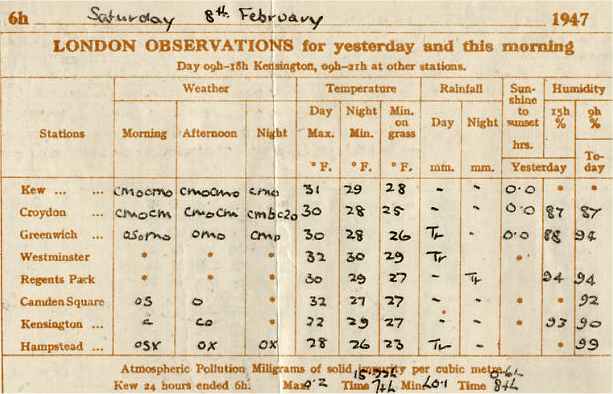 6h Saturday 8th February 1947
LONDON OBSERVATIONS for yesterday and this morning
Day 09h-18h Kensington, 09h-21h at other stations.
Stations Weather Temperature Rainfall Sun-shine to sunset hrs. Humidity
Morning Afternoon Night Day Max. Night Min. Min. on grass Day Night 15h % 9h %
° F. ° F. ° F. mm. mm. Yesterday To-day
Kew ... ... cmocmo cmocmo cmo 31 29 28 - - 0.0 * *
Croydon ... cmocm cmocm cmbc20 30 28 25 - - 0.0 87 87
Greenwich ... omo 30 28 26 Tr - 0.0 88 94
Westminster * * * 32 30 29 Tr - * * *
Regents Park * * * 30 29 27 - Tr 94 94
Camden Square os o * 32 27 27 - - * * 92
Kensington ... c co * 29 27 - - 93 90
Hampstead ... osx ox ox 28 26 23 Tr - * 99
Atmospheric Pollution Miligrams of solid impurity per cubic metre
Kew 24 hours ended 6h. Max 0.2 Time Min <0.1 Time